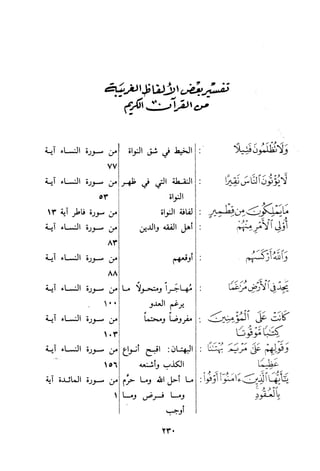 تفسير بعض الألفاظ الغريبة
من القرآن الكريم
وَلَا تُظْلَمُونَ فَتِيلًا : الخيط في شق النواة من سورة النساء آية
٧٧
لَا يُؤْتُونَ النَّاسَ نَقِيرًا : النقطة التي في ظهر من سورة النساء آية
النواة ٥٣
مَا يَمْلِكُونَ مِن قِطْمِيرٍ : لفافة النواة من سورة فاطر آية ١٣
أُولِي الْأَمْرِ مِنْهُمْ : أهل الفقه والدين من سورة النساء آية
٨٣
وَاللَّهُ أَرْكَسَهُم : أوقعهم من سورة النساء آية
٨٨
يَجِدْ فِي الْأَرْضِ مُرَاغَمًا : مُهاجَراً ومتحولاً ما من سورة النساء آية
يرغم العدو ١٠٠
كَانَتْ عَلَى الْمُؤْمِنِينَ : مفروضاً ومحتماً من سورة النساء آية
كِتَابًا مَّوْقُوتًا ١٠٣
وَقَوْلِهِمْ عَلَىٰ مَرْيَمَ بُهْتَانًا : البهتان: اقبح أنواع من سورة النساء آية
عَظِيمًا الكذب وأشنعه ١٥٦
يَا أَيُّهَا الَّذِينَ ءَامَنُوا أَوْفُوا : ما أحل الله وما حرّم من سورة المائدة آية
بِالْعُقُودِ وما فرض وما ١
أوجب
٢٣٠